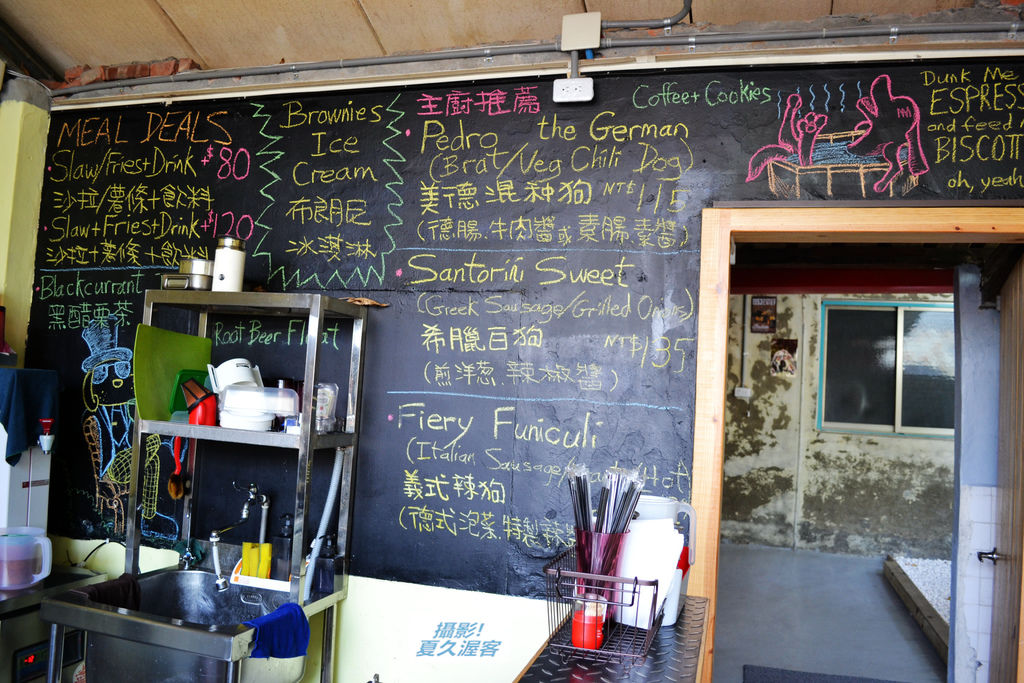 MEAL DEALS
Slaw/Fries+Drink $80
沙拉/薯條+飲料
Slaw+Fries+Drink $120
沙拉+薯條+飲料
Blackcurrant
黑醋栗茶
Root Beer Float
Brownies
Ice
Cream
布朗尼
冰淇淋
主廚推薦
Pedro the German
(Brat/Veg Chili Dog)
美德混种狗 NT$115
(德腸.牛肉醬或素腸.素醬)
Santorini Sweet
(Greek Sausage/Grilled Onions)
希臘百狗 NT$135
(煎洋葱.辣椒醬)
Fiery Funiculi
(Italian Sausage/
義式辣狗
(德式泡菜.特製辣
Coffee+Cookies
Dunk Me
ESPRESS
and feed
BISCOTT
oh, yeah
攝影!
夏久渥客